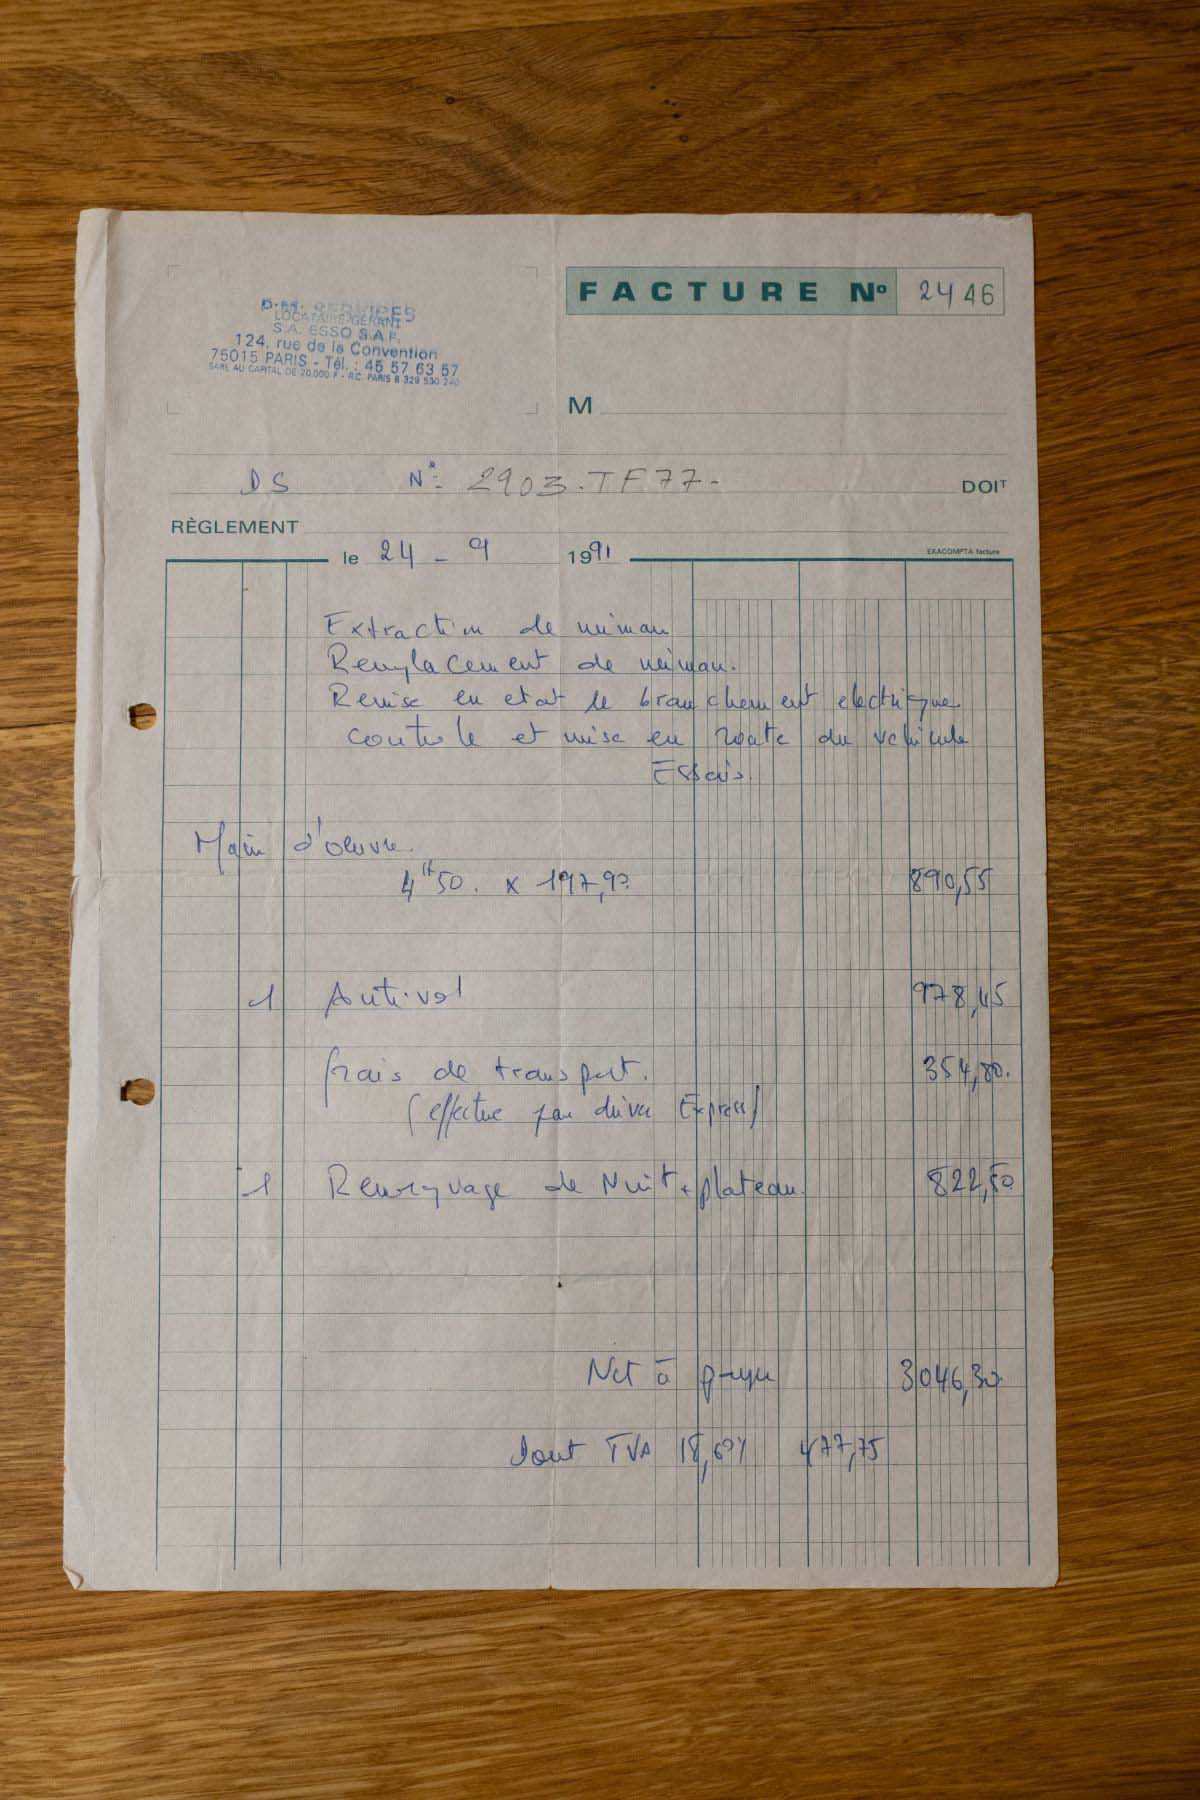 FACTURE Nº 2446
SERVICES
LOCATAIRE-GERANT
S.A. ESSO S.A.F.
124, rue de la Convention
75015 PARIS - Tél. : 45 57 63 57
SARL AU CAPITAL DE 20.000 F - R.C. PARIS B 329 530 240
M
DS N°= 2903.TF77-
DOIT
RÈGLEMENT
le 24 - 9 1991
EXACOMPTA facture
Extraction de neiman
Remplacement de neiman.
Remise en etat le branchement electrique
controle et mise en route du vehicule
Essais.
Main d'oeuvre
4H50. x 197,90 890,55
1 Antivol 978,45
frais de transport. 354,80.
(effectue par driver Express)
1 Remorquage de Nuit + plateau. 822,50
Net à payer 3046,30
dont TVA 18,6% 477,75